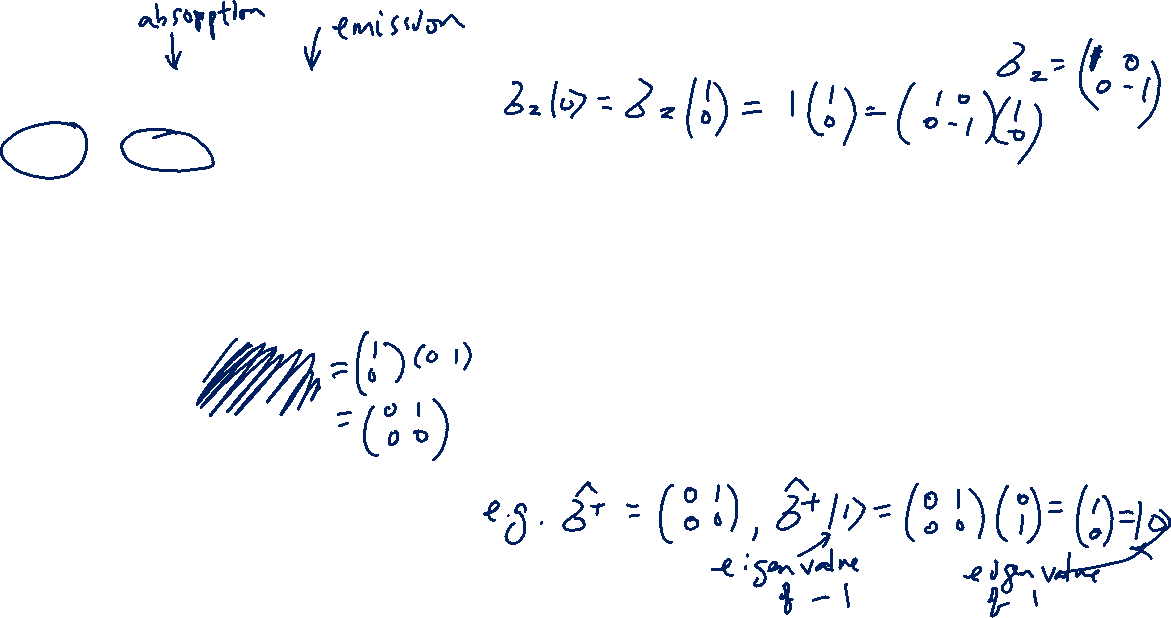 absorption
emission
σ_z = (1 0 / 0 -1)
σ_z|0> = σ_z (1 / 0) = 1 (1 / 0) = (1 0 / 0 -1)(1 / 0)
= (1 / 0)(0 1)
= (0 1 / 0 0)
e.g. σ̂+ = (0 1 / 0 0), σ̂+|1> = (0 1 / 0 0)(0 / 1) = (1 / 0) = |0>
eigenvalue of -1
eigenvalue of 1